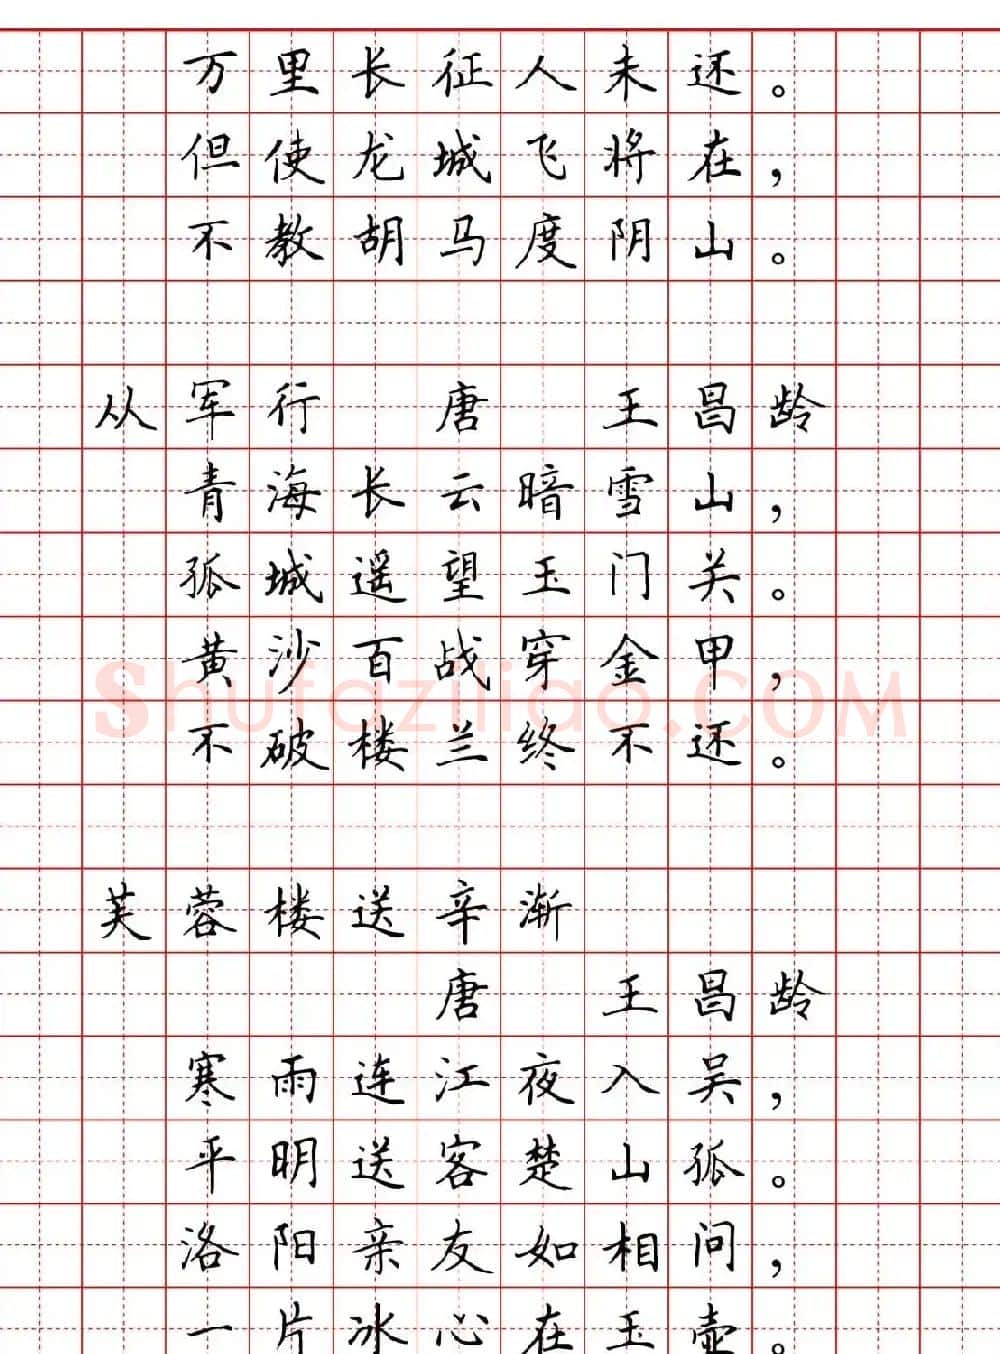 万里长征人未还。
但使龙城飞将在，
不教胡马度阴山。
从军行 唐 王昌龄
青海长云暗雪山，
孤城遥望玉门关。
黄沙百战穿金甲，
不破楼兰终不还。
芙蓉楼送辛渐
唐 王昌龄
寒雨连江夜入吴，
平明送客楚山孤。
洛阳亲友如相问，
一片冰心在玉壶。
Shufaziliao.COM